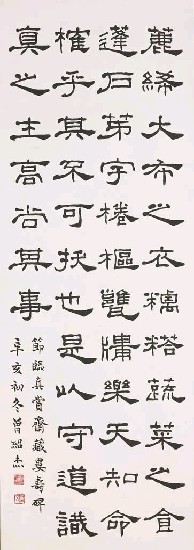 麤絺大布之衣糲荅蔬菜之食
蓬戶茅宇棬樞甕牖樂天知命
榷乎其不可拔也是以守道識
真之士高尚其事
節臨真賞齋藏婁壽碑
辛亥初冬曾紹杰